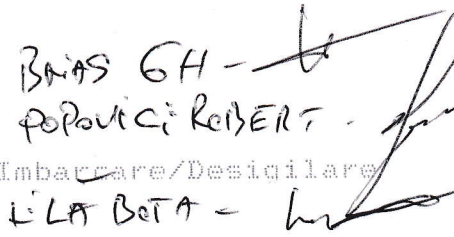 BRIAS GH -
POPOVICI ROBERT -
Imbarcare/Desigilare
LILA BETA -